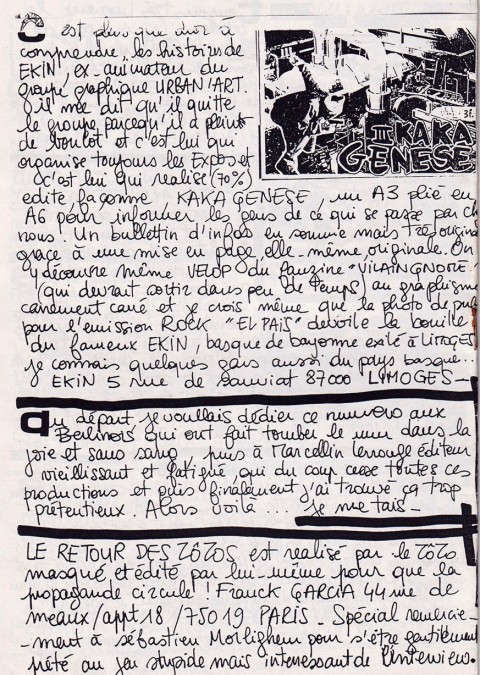 C'est plus que dur à
comprendre, les histoires de
EKIN, ex-animateur du
groupe graphique URBAN'ART.
il me dit qu'il quitte
le groupe parcequ'il a plein
de boulot et c'est lui qui
organise toujours les Expos et
c'est lui qui realise (70%)
3f.
II KAKA
GENESE
edite façonne KAKA GENESE un A3 plié en
A6 pour informer les gens de ce qui se passe par ch
nous. Un bulletin d'infos en somme mais très origina
grâce à une mise en page, elle-même, originale. On
y découvre même VELOP du fanzine "VILAIN GNOME"
(qui devrait sortir dans peu de temps) au graphisme
carrément carré et je crois même que la photo de pub
pour l'emission ROCK "EL PAÏS" dévoile la bouille
du fameux EKIN, basque de bayonne exilé à LIMOGES
je connais quelques gars aussi du pays basque...
EKIN 5 rue de sauviat 87000 LIMOGES_
au départ, je voullais dédier ce numero aux
Berlinois qui ont fait tomber le mur dans la
joie et sans sang, puis à Marcellin editeur
vieillissant et fatigué, qui du coup cesse toutes ces
productions et puis finalement j'ai trouvé ça trop
prétentieux. Alors voilà... je me tais_
LE RETOUR DES ZÔZOS est realisé par le ZÔZO
masqué et édité par lui-même pour que la
propagande circule ! Franck GARCIA 44 rue de
meaux/appt 18/75019 PARIS. Spécial remercie-
-ment à sébastien Morlighem pour s'être gentiment
prêté au jeu stupide mais interessant de l'interview.